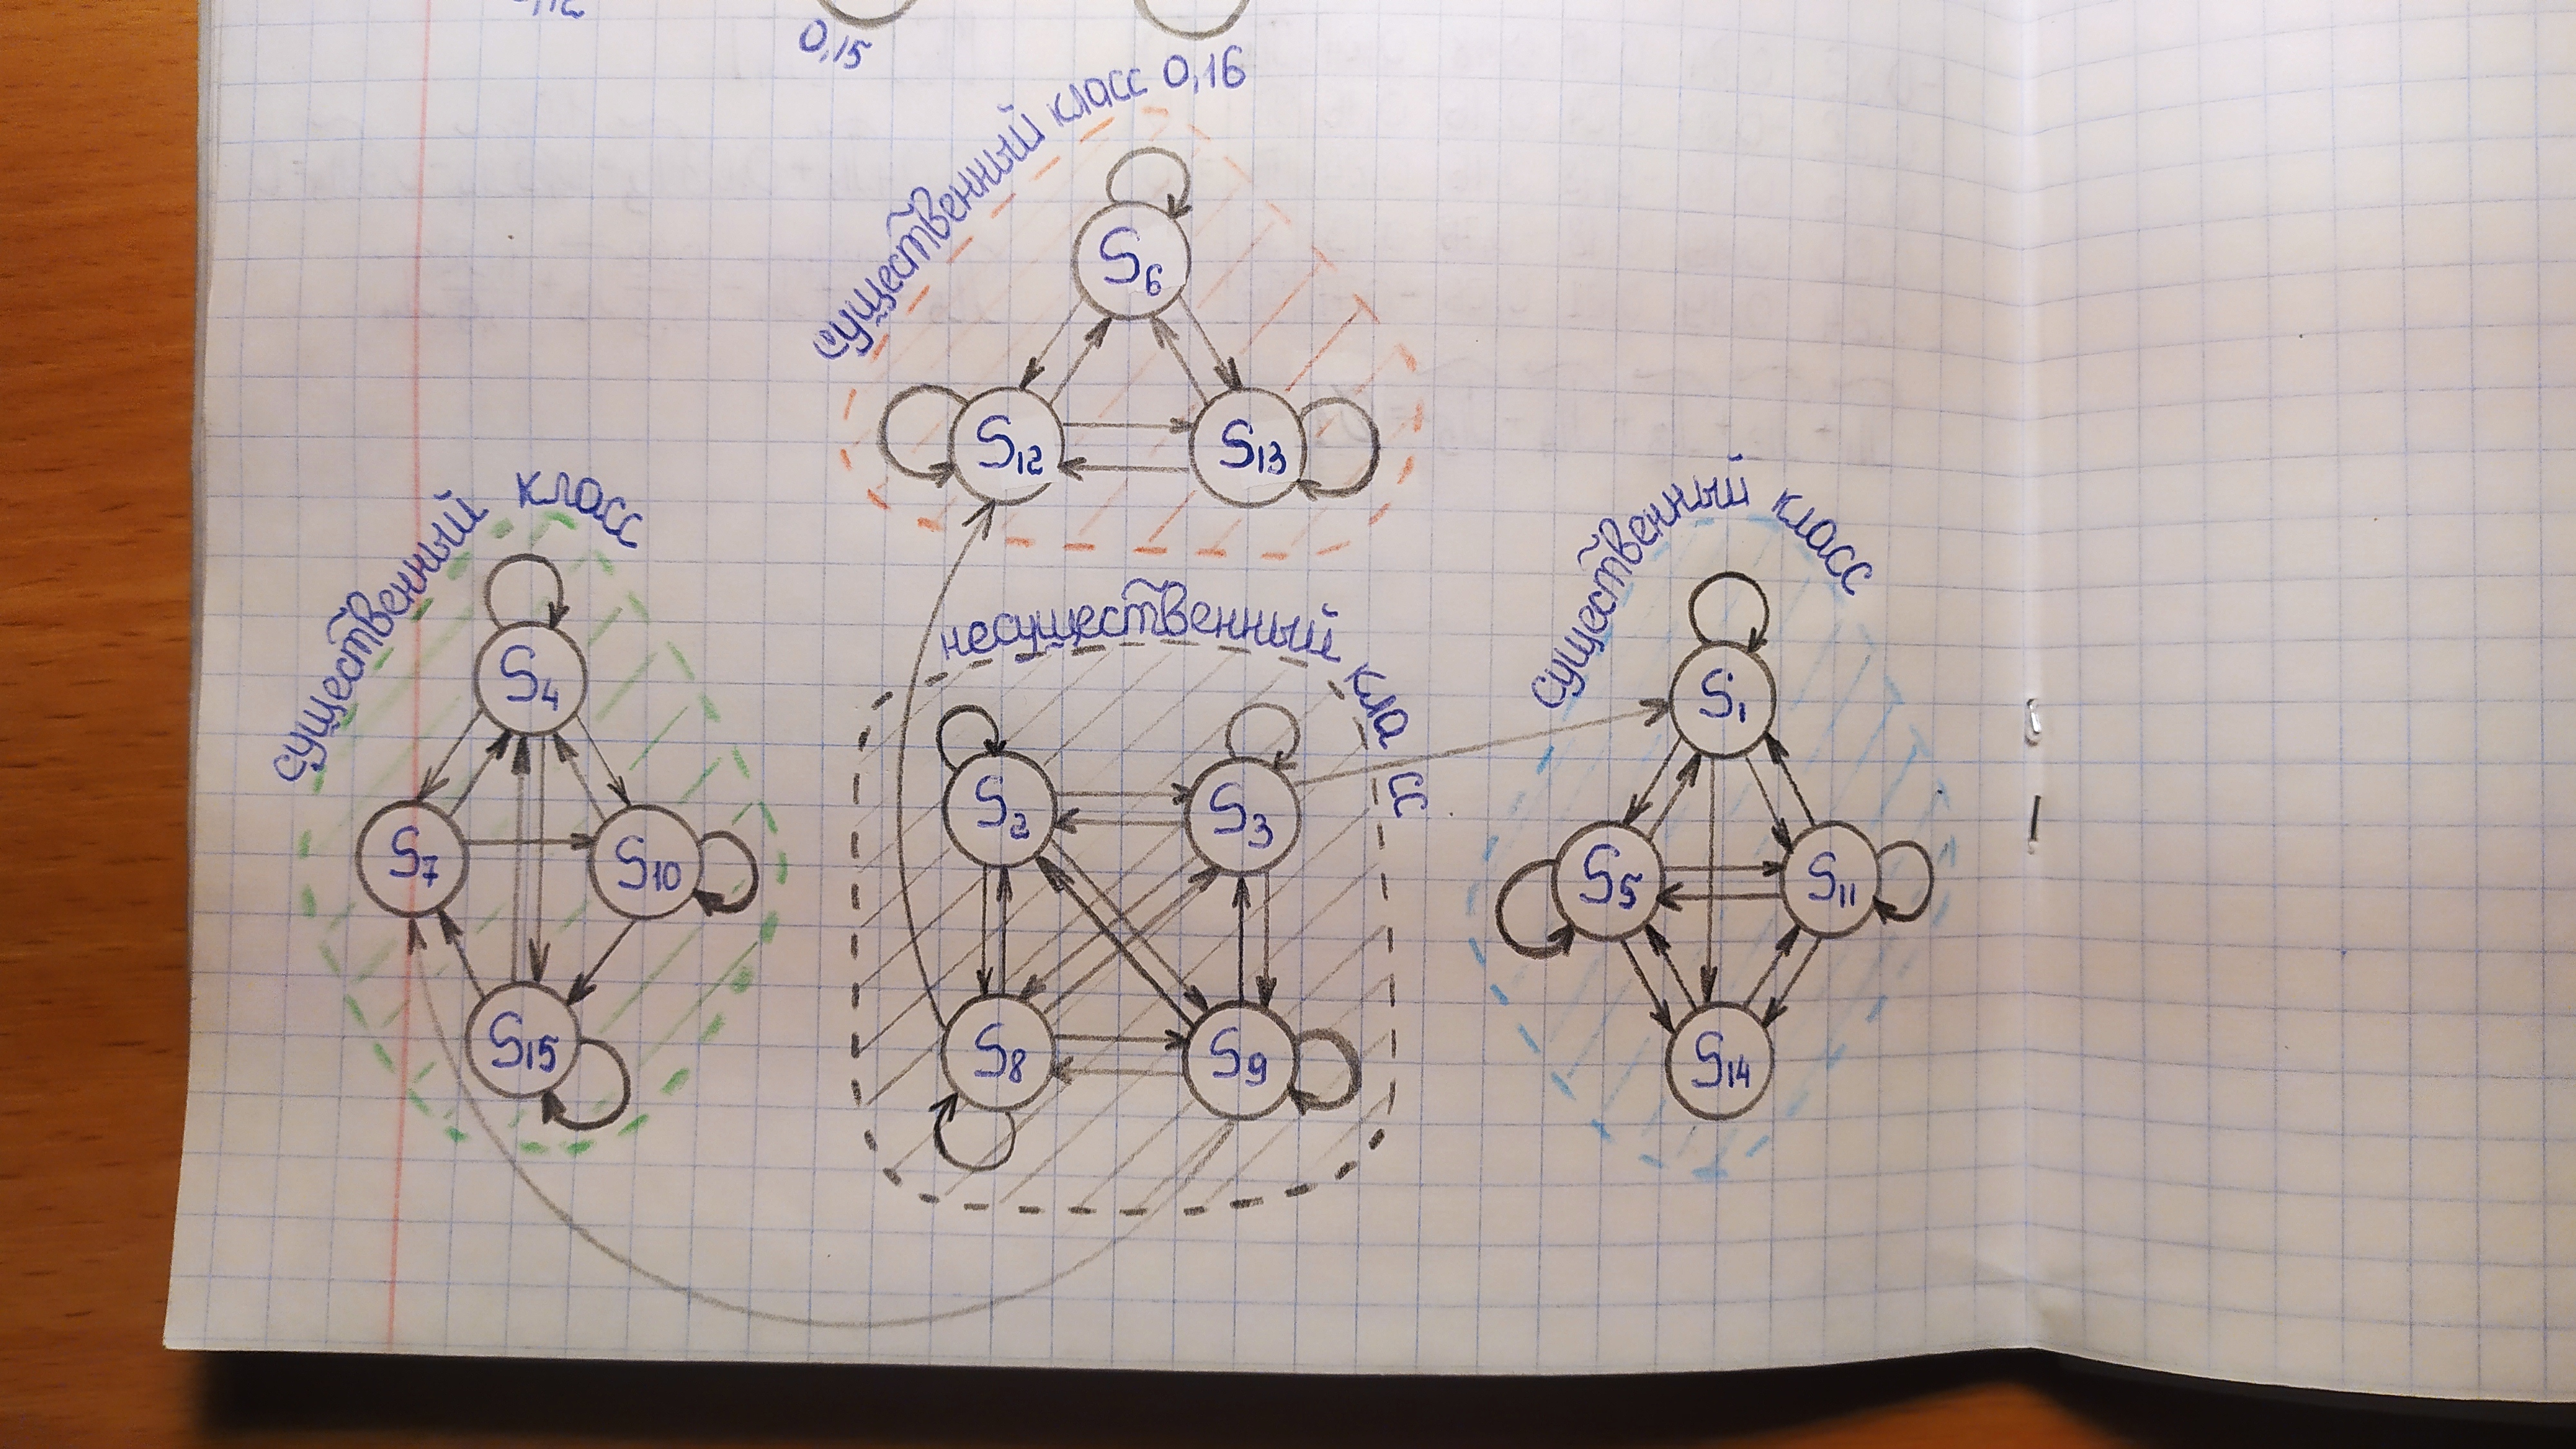 0,15
0,16
существенный класс
S6
S12 S13
существенный класс
S4
S7 S10
S15
несущественный класс
S2 S3
S8 S9
существенный класс
S1
S5 S11
S14